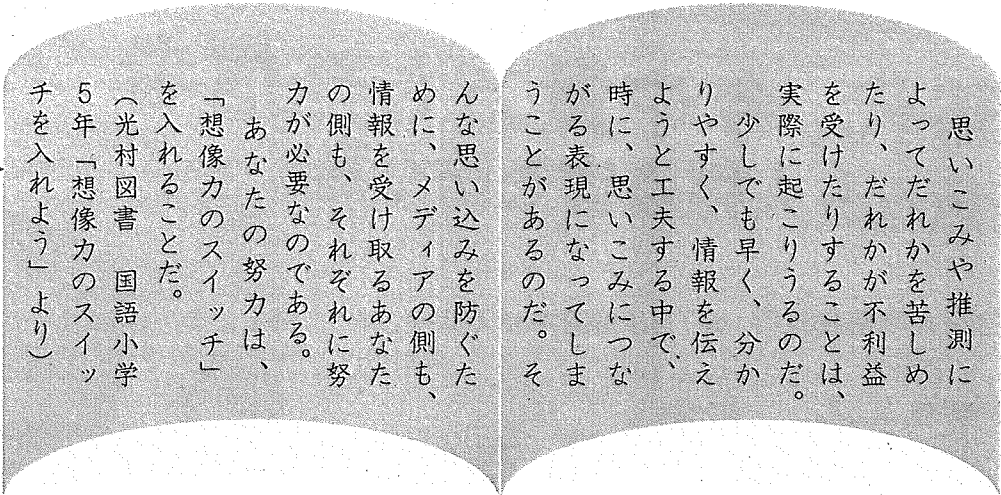 思いこみや推測に
よってだれかを苦しめ
たり、だれかが不利益
を受けたりすることは、
実際に起こりうるのだ。
少しでも早く、分か
りやすく、情報を伝え
ようと工夫する中で、
時に、思いこみにつな
がる表現になってしま
うことがあるのだ。そ
んな思い込みを防ぐた
めに、メディアの側も、
情報を受け取るあなた
の側も、それぞれに努
力が必要なのである。
あなたの努力は、
「想像力のスイッチ」
を入れることだ。
(光村図書　国語小学
５年「想像力のスイッ
チを入れよう」より)